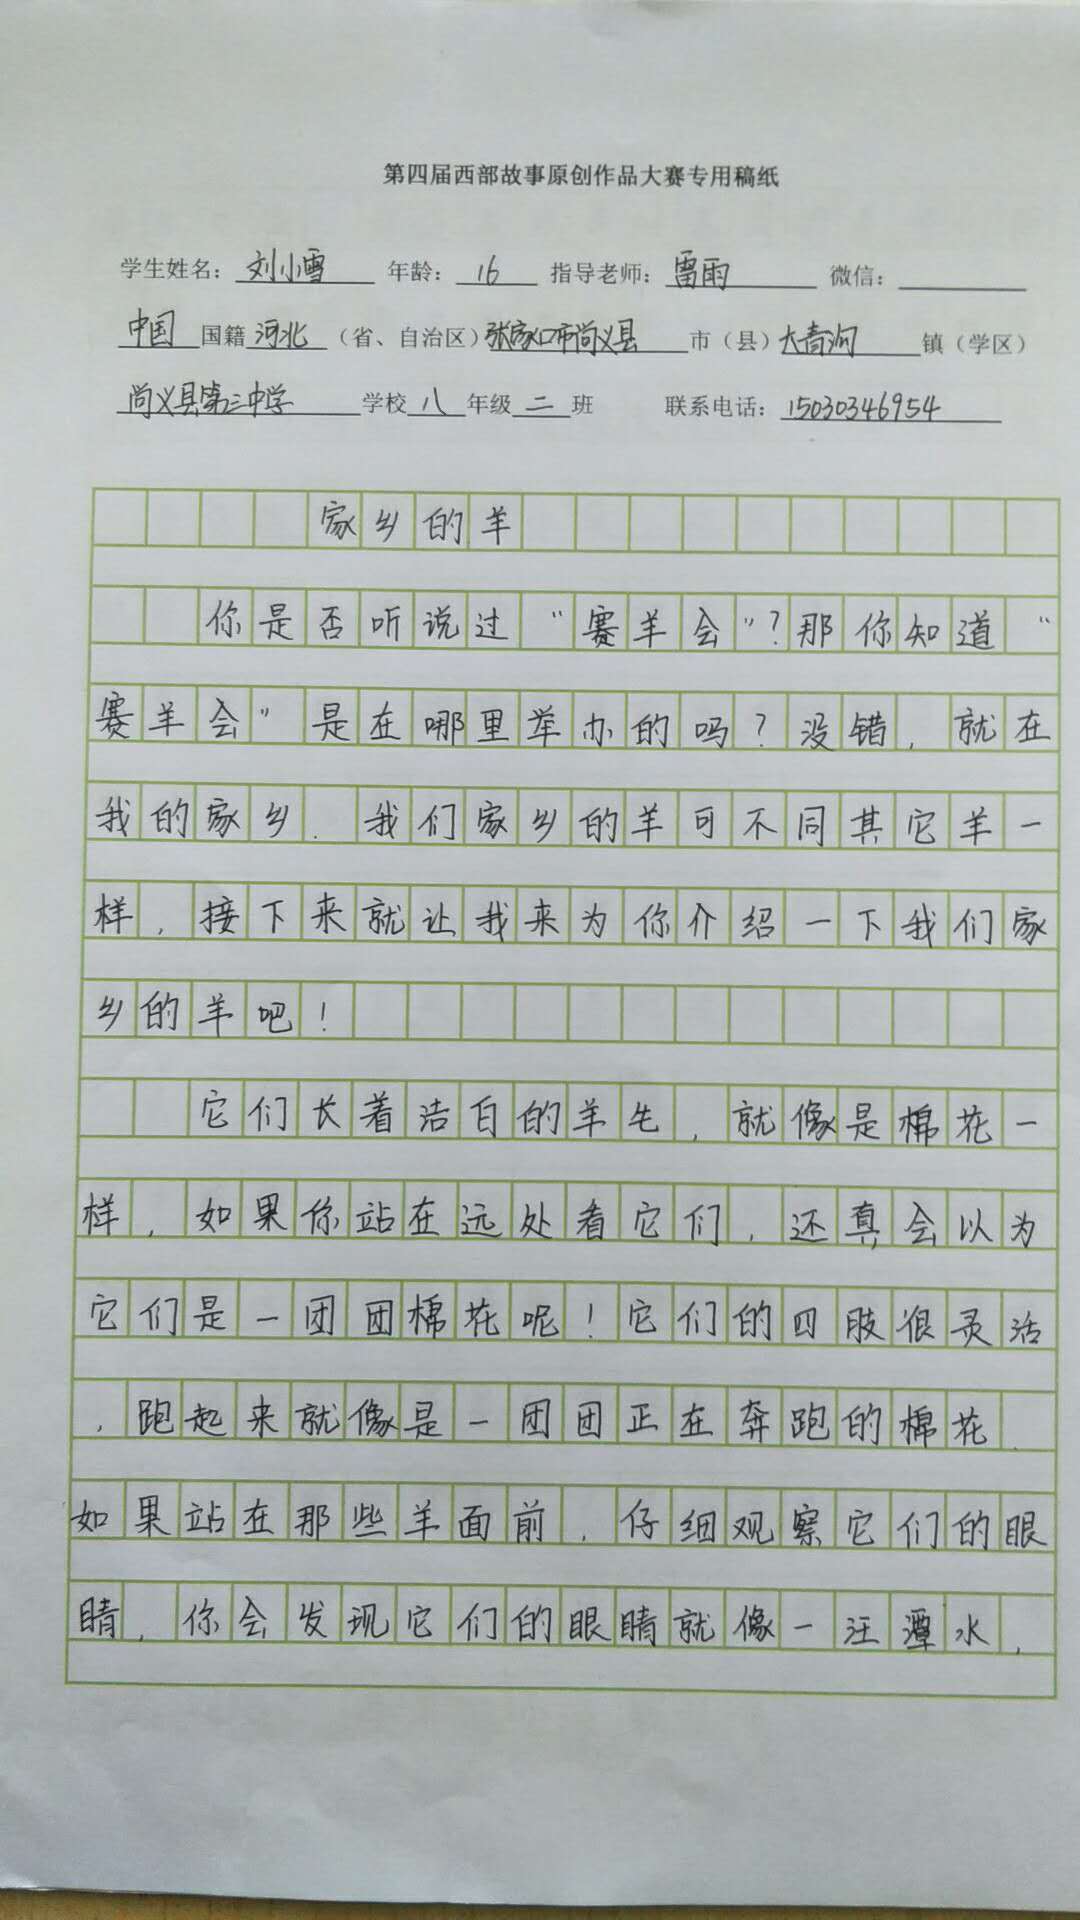 第四届西部故事原创作品大赛专用稿纸
学生姓名：刘小雪 年龄：16 指导老师：雷雨 微信：
中国 国籍 河北（省、自治区）张家口市尚义县 市（县）大青沟 镇（学区）
尚义县第三中学 学校 八 年级 二 班 联系电话：15030346954
家乡的羊
你是否听说过“赛羊会”？那你知道“
赛羊会”是在哪里举办的吗？没错，就在
我的家乡．我们家乡的羊可不同其它羊一
样，接下来就让我来为你介绍一下我们家
乡的羊吧！
它们长着洁白的羊毛，就像是棉花一
样，如果你站在远处看它们，还真会以为
它们是一团团棉花呢！它们的四肢很灵活
，跑起来就像是一团团正在奔跑的棉花．
如果站在那些羊面前，仔细观察它们的眼
睛，你会发现它们的眼睛就像一汪潭水，